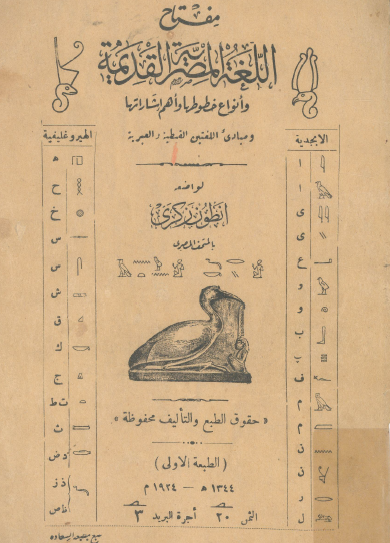 مفتاح
اللغة المصرية القديمة
وأنواع خطوطها وأهم إشاراتها
ومبادئ اللغتين القبطية والعبرية
لواضعه
انطون زكري
بالمتحف المصري
الهيروغليفية
ه
ح
خ
س
س
ش
ق
ك
ج
ت ط
ث
د ض
ذ ز
ظ ص
الابجدية
ا
ا
ى
ى
ع
و
و
ب
پ
ف
م
م
ن
ن
ر
ل
« حقوق الطبع والتأليف محفوظة »
( الطبعة الاولى )
١٣٤٤ هـ — ١٩٢٤ م
الثمن ٢٠ أجرة البريد ٣
طبع بمطبعة السعادة